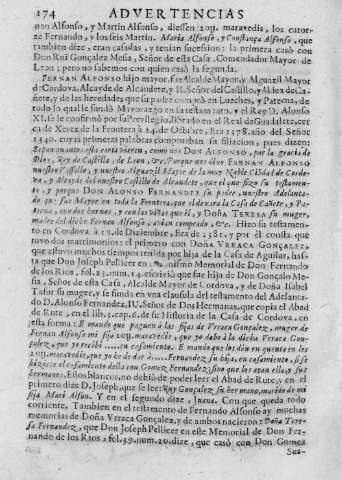 174 ADVERTENCIAS
nan Alfonso, y Martin Alfonso, diessen 20y. maravedis, los cator-
ze Fernando, y los seis Martin. Maria Alfonso, y Constança Alfonso, que
tambien dize, eran casadas, y tenian sucession: la primera casò con
Don Rui Gonçalez Mesia, Señor de esta Casa, Comendador Mayor de
Leon; pero no sabemos con quien casò la segunda.
FERNAN ALFONSO hijo mayor, fue Alcalde Mayor, y Alguazil Mayor
de Cordova, Alcayde de Alcaudete, y II. Señor del Castillo, y Aldea de Ca-
ñete, y de las heredades que su padre comprò en Lueches, y Paterna, de
todo lo qual le fundò Mayorazgo en su testamento, y el Rey D. Alonso
XI. se le confirmò por su Privilegio, librado en el Real de Guadalete, cer-
ca de Xerez de la Frontera à 24. de Octubre, Era 1378. año del Señor
1340. cuyas primeras palabras comprueban su filiacion, pues dizen:
Sepan quantos esta carta vieren, como nos DON ALFONSO, por la gracia de
Dios, Rey de Castilla, de Leon, &c. Porque nos dixo FERNAN ALFONSO
nuestro Vassallo, y nuestro Alguazil Mayor de la muy Noble Ciudad de Cordo-
va, y Alcayde del nuestro Castillo de Alcaudete, que el que fizo su testamen-
to, y porque DON ALONSO FERNANDEZ su padre, nuestro Adelanta-
do que fue Mayor en toda la Frontera, que el dexàra la Casa de Cañete, y Pa-
terna, con dos hornos, y con las viñas que él, y DOÑA TERESA su muger,
madre del dicho Fernan Alfonso, avian comprado, &c. Hizo su testamen-
to en Cordova à 13. de Diziembre, Era de 1381. y por èl consta que
tuvo dos matrimonios: el primero con DOÑA URRACA GONÇALEZ,
que estuvo muchos tiempos tenida por hija de la Casa de Aguilar, has-
ta que Don Joseph Pellicer en el mismo Memorial de Don Fernando
de los Rios, fol. 23. num. 14. escriviò que fue hija de Don Gonçalo Me-
sia, Señor de esta Casa, Alcalde Mayor de Cordova, y de Doña Isabel
Tafur su muger, y se funda en vna clausula del testamento del Adelanta-
do D. Alonso Fernandez, IV. Señor de Dos Hermanas, que copia el Abad
de Rute, en el lib. 3. cap. 6. de su Historia de la Casa de Cordova, en
esta forma: E mando que paguen à las fijas de Vrraca Gonçalez, muger de
Fernan Alfonso mi fijo 10y. maravedis, que yo debo à la dicha Vrraca Gon-
çalez, que yo recibì ..... en casamiento. E mando que les dèn en quenta en los
20y. maravedis, que yo he de dar à ..... Fernandez su hija, en casamiento, si se
hiziere el casamiento della con Gomez Fernandez: sino que los aya en ella, y sus
hermanas. Estos blancos, no debiò de poder leer el Abad de Rute, en el
primero dize D. Joseph, que se lee: Ruy Gonçalez su hermano, marido de mi
fija Mari Alfon. Y en el segundo dize, Juana. Con que queda todo
corriente. Tambien en el testamento de Fernando Alfonso ay muchas
memorias de DOÑA URRACA GONÇALEZ, y de ambos nacieron: DOÑA Tere-
sa Fernandez, que Don Joseph Pellicer en este Memorial de Don Fer-
nando de los Rios, fol. 39. num. 20. dize, que casò con Don Gomez
Sua-